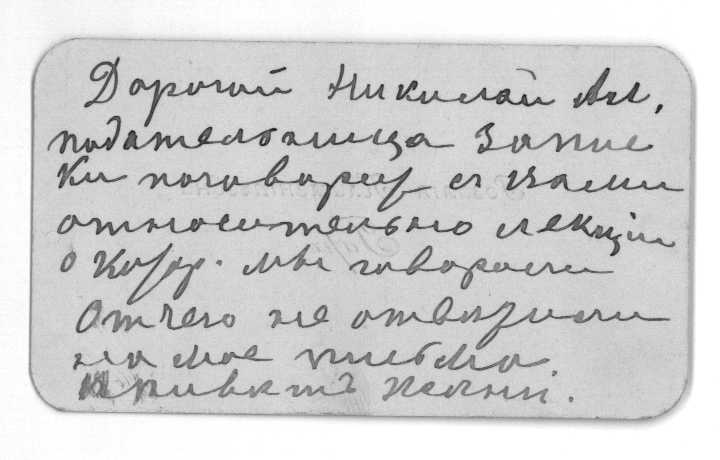 Дорогой Николай Ал.
подательница запис
ки поговорит с вами
относительно лекции
о котор. мы говорили
Отчего не ответили
на мое письмо
Привѣтъ жене.